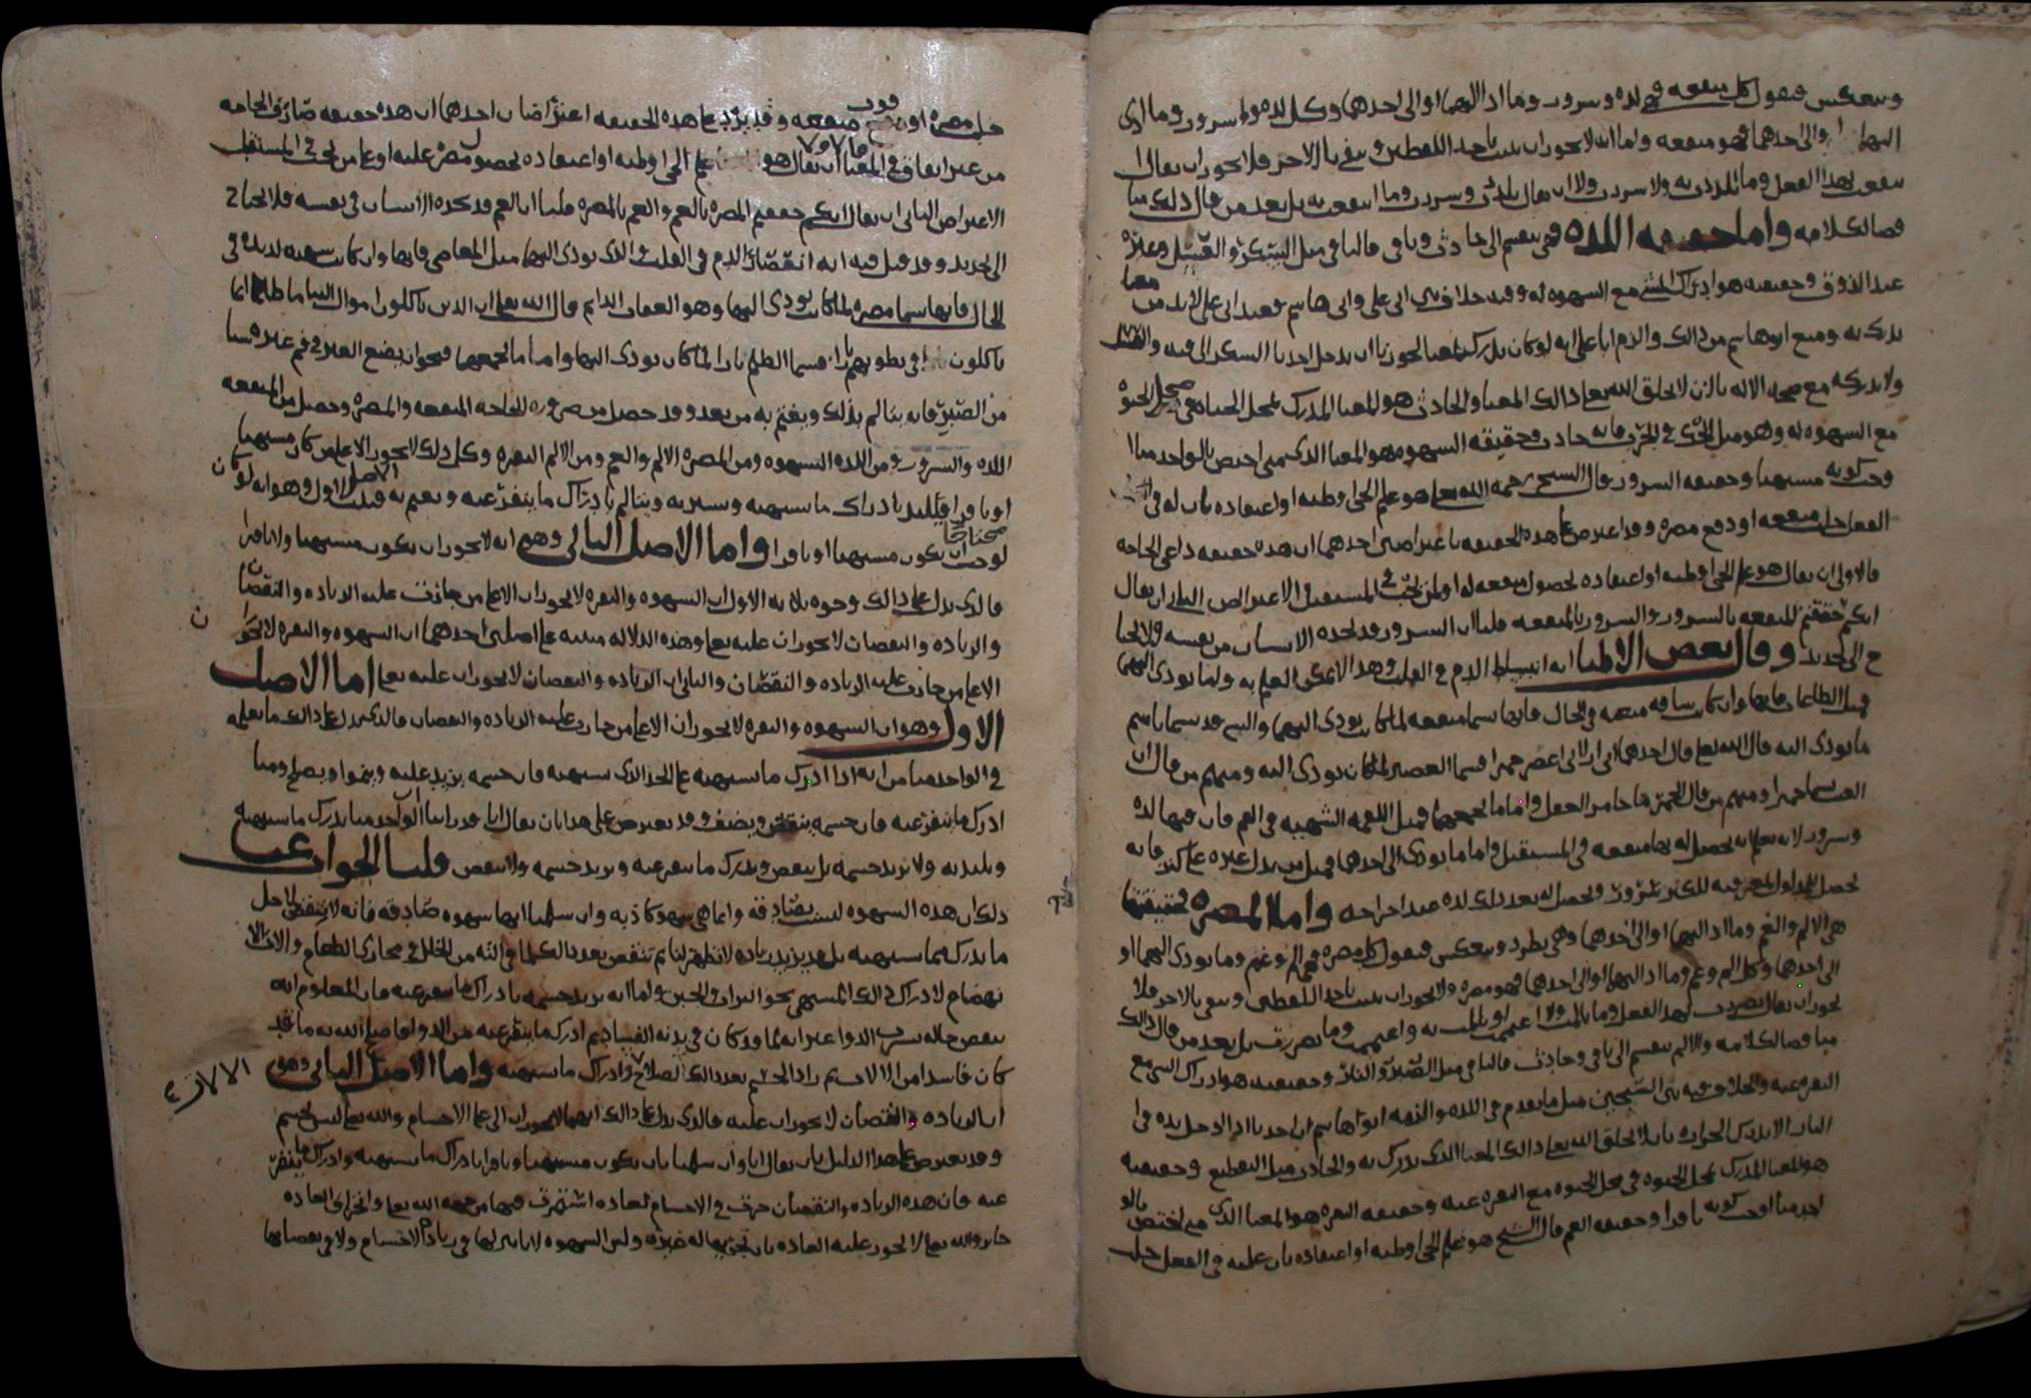 وينعكس فنقول كل منفعه فهي لذه وسرور وما ادا اليهما او الى احدهما وكل لذه وسرور وما ادى
اليهما او الى احدهما فهو منفعه واما انه لا يجوز ان يثبت باحد اللفظين وينفى بالاخر فلا يجوز ان يقال
انتفعت بهذا الفعل وما تلذذت به ولا سررت ولا ان يقال تلذذت وسررت وما انتفعت به بل يعد من قال ذلك مناقضا
لكلامه واما حقيقه اللذه فهي تنقسم الى حادث وباقي فالباقي مثل السكر والعسل وغيره
عند الذوق وحقيقته هو ادراك الشي مع الشهوه له وفيه خلاف بين ابي علي وابي هاشم فعند ابي علي لا بد من معنا
يدرك به ومنع ابو هاشم من ذالك والزم ابا علي انه لو كان يدرك لمعنا لجوزنا ان يدخل احدنا السكر الى فيه
ولا يدركه مع صحه الاله بان لا يخلق الله تعالى ذالك المعنا والحادث هو المعنا المدرك بمحل الحياه في محل الحيوه
مع الشهوه له وهو مثل الحك في الجرب فانه حادث وحقيقه الشهوه هو المعنا الذي متى اختص بالواحد منا
وجب كونه مشتهيا وحقيقه السرور قال الشيخ رحمه الله تعالى هو علم الحي او ظنه او اعتقاده بان له في
الفعل جلب منفعه او دفع مضره وقد اعترض على هذه الحقيقه باعتراضين احدهما ان هذه حقيقه داعي الحاجه
فالاولى ان يقال هو علم الحي او ظنه او اعتقاده لحصول منفعه له او لمن يحب في المستقبل الاعتراض الثاني ان يقال
انكم حققتم المنفعه بالسرور والسرور بالمنفعه قلنا ان السرور قد يجده الانسان من نفسه ولا يحتا
ج الى تحديد وقال بعض الاطبا انه انبساط الدم في القلب وهذا لا يمكن العلم به واما يودي اليهما
فمثل الطاعات فانها وان كانت شاقه متعبه في الحال فانها تسما منفعه لما كانت تودي اليهما والشي قد يسما باسم
ما يودي اليه قال الله تعالى قال احدهما اني اراني اعصر خمرا فسما العصير لما كان يودي اليه ومنهم من قال ان
العنب يسما خمرا ومنهم من قال الخمر ما خامر العقل واما ما يجمعهما فمثل اللقمه الشهيه في الفم فان فيها لذه
وسرور لانه يعلم انه يحصل له بها منفعه في المستقبل واما ما يودي الى احدهما فمثل من يدل غيره على كنز فانه
يحصل للمدلول المعرفه للكنز سرور ويحصل له بعد ذلك لذه عند اخراجه واما المضره فحقيقتها
هي الالم والغم وما ادا اليهما او الى احدهما وهي تطرد وتنعكس فنقول كل مضره فهي الم وغم وما يودي اليهما او
الى احدهما وكل الم وغم وما ادا اليهما او الى احدهما فهو مضره ولا يجوز ان يثبت باحد اللفظين وينفى بالاخر فلا
يجوز ان يقال تضررت بهذا الفعل وما تالمت ولا اغتممت او تالمت به واغتممت وما تضررت بل يعد من قال ذالك
مناقضا لكلامه والالم ينقسم الى باقي وحادث فالباقي مثل الصبر والنار وحقيقته هو ادراك الشي مع
النفره عنه والخلاف فيه بين الشيخين مثل ما تقدم في اللذه والزمه ابو هاشم ان احدنا اذا ادخل يده في
النار الا يدرك الحراره بان لا يخلق الله تعالى ذالك المعنا الذي يدرك به والحادث مثل التقطيع وحقيقته
هو المعنا المدرك بمحل الحيوه في محل الحيوه مع النفره عنه وحقيقه النفره هو المعنا الذي متى اختص بالوا
احد منا اوجب كونه نافرا وحقيقه الغم قال الشيخ هو علم الحي او ظنه او اعتقاده بان عليه في الفعل جلب
جلب مضره او فوت منفعه وقد يرد على هذه الحقيقه اعتراضان احدهما ان هذه حقيقه صارف الحاجه
من غير اتفاق في المعنا ان يقال هو علم الحي او ظنه او اعتقاده لحصول مضره عليه او على من يحب في المستقبل
الاعتراض الثاني ان يقال انكم حققتم المضره بالغم والغم بالمضره قلنا ان الغم قد يجده الانسان في نفسه فلا يحتاج
الى تحديد وقد قيل فيه انه انقصار الدم في القلب والذي يودي اليهما مثل المعاصي فانها وان كانت شهيه لذيذه في
الحال فانها تسما مضره لما كانت تودي اليهما وهو العقاب الدايم قال الله تعالى ان الذين ياكلون اموال اليتاما ظلما انما
ياكلون في بطونهم نارا فسما الظلم نارا لما كان يودي اليها واما ما يجمعهما فنحو ان يضع العدو في فم عدوه شيا
من الصبر فانه يتالم بذلك ويغتم به من بعد وقد حصل من ضروره للحاجه المنفعه والمضره وحصل من المنفعه
اللذه والسرور ومن اللذه الشهوه ومن المضره الالم والغم ومن الالم النفره وكل ذلك لا يجوز الا على من كان مشتهيا
او نافرا فيلتذ بادراك ما يشتهيه ويسر به ويتالم بادراك ما ينفر عنه ويغتم به فثبت الاصل الاول وهو انه لو كان
محتاجا لوجب ان يكون مشتهيا او نافرا واما الاصل الثاني وهو انه لا يجوز ان يكون مشتهيا ولا نافرا
فالذي يدل على ذالك وجوه ثلاثه الاول ان الشهوه والنفره لا يجوزان الا على من جازت عليه الزياده والنقصان
والزياده والنقصان لا يجوزان عليه تعالى وهذه الدلاله مبنيه على اصلين احدهما ان الشهوه والنفره لا تجوزا
ن
الا على من جازت عليه الزياده والنقصان والثاني ان الزياده والنقصان لا يجوزان عليه تعالى اما الاصل
الاول وهو ان الشهوه والنفره لا يجوزان الا على من جازت عليه الزياده والنقصان فالذي يدل على ذالك ما نعلمه
في الواحد منا من انه اذا ادرك ما يشتهيه على الحد الذي يشتهيه فان جسمه يزيد عليه وينموا ويصلح ومتا
ادرك ما ينفر عنه فان جسمه ينقص ويضعف وقد يعترض على هذا بان يقال انا قد راينا الواحد منا يدرك ما يشتهيه
ويلتذ به ولا يزيد جسمه بل ينقص ويدرك ما ينفر عنه ويزيد جسمه ولا ينقص قلنا الجواب عن
ذلك ان هذه الشهوه ليست بصادقه وانما هي شهوه كاذبه وان سلمنا انها شهوه صادقه فانه لا ينقص لاجل
ما يدرك مما يشتهيه بل قد يزيد زياده لا تظهر لنا ثم تنقص بعد ذالك لما في الته من الخلل في مجاري الطعام والات الا
نهضام لا ادراك ذالك المشتهى نحو التراب والجبن واما انه يزيد جسمه بادراك ما ينفر عنه فان المعلوم انه
ينقص حاله شرب الدوا غير انه لما قد كان في بدنه الفساد ثم ادرك ما ينفر عنه من الدوا فاصلح الله به ما قد
كان فاسدا من الالات ثم زاد الجسم بعد ذالك الصلاح وادراك ما يشتهيه واما الاصل الثاني وهو
ان الزياده والنقصان لا يجوزان عليه فالذي يدل على ذالك انهما لا يجوزان الا على الاجسام والله تعالى ليس بجسم
وقد يعترض على هذا الدليل بان يقال انا وان سلمنا بان يكون مشتهيا ونافرا بادراك ما يشتهيه وادراك ما ينفر
عنه فان هذه الزياده والنقصان حرت في الاجسام لعاده استمرت فيها من جهه الله تعالى واجرا العاده
جايز والله تعالى لا يجوز عليه العاده بان يجريها له غيره وليس الشهوه لا تاثير لها في زياده الاجسام ولا في نقصانها